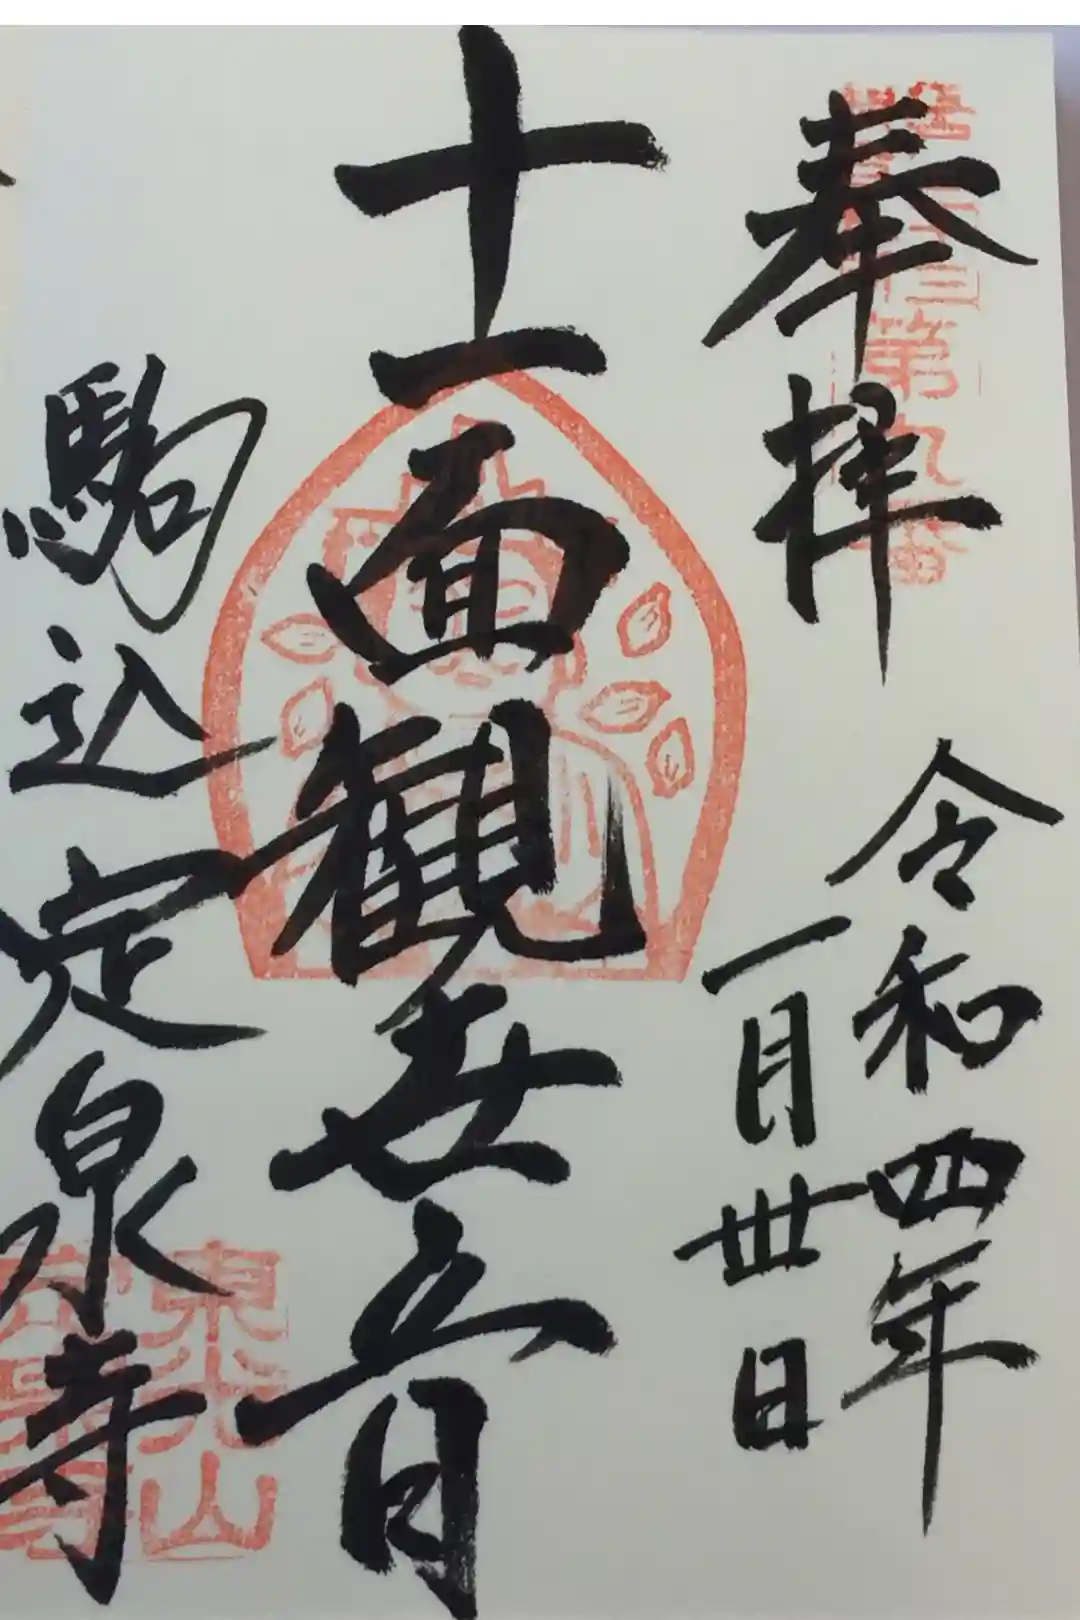 奉拝 令和四年
一月丗日
十一面観世音
駒込定泉寺
第九番
東光山
定泉寺